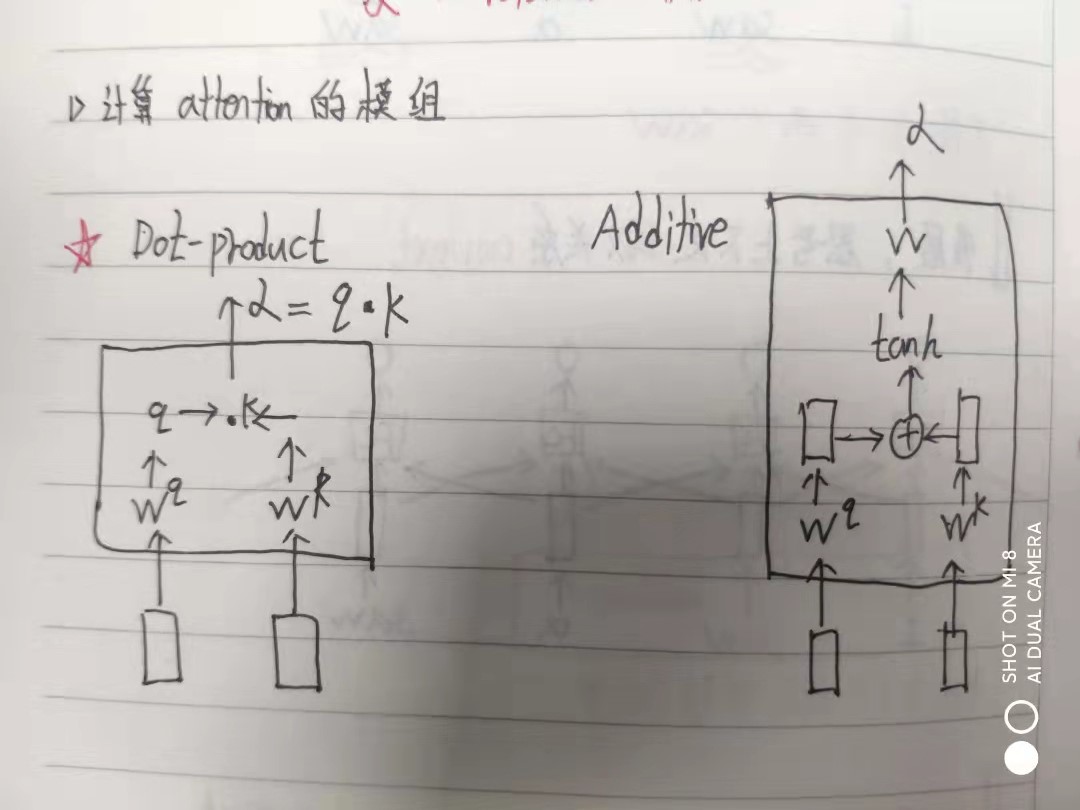 1> 计算 attention 的模组
☆ Dot-product
α = q · k
q → · k ←
W^q W^k
Additive
α
W
tanh
+
W^q W^k
SHOT ON MI 8
AI DUAL CAMERA